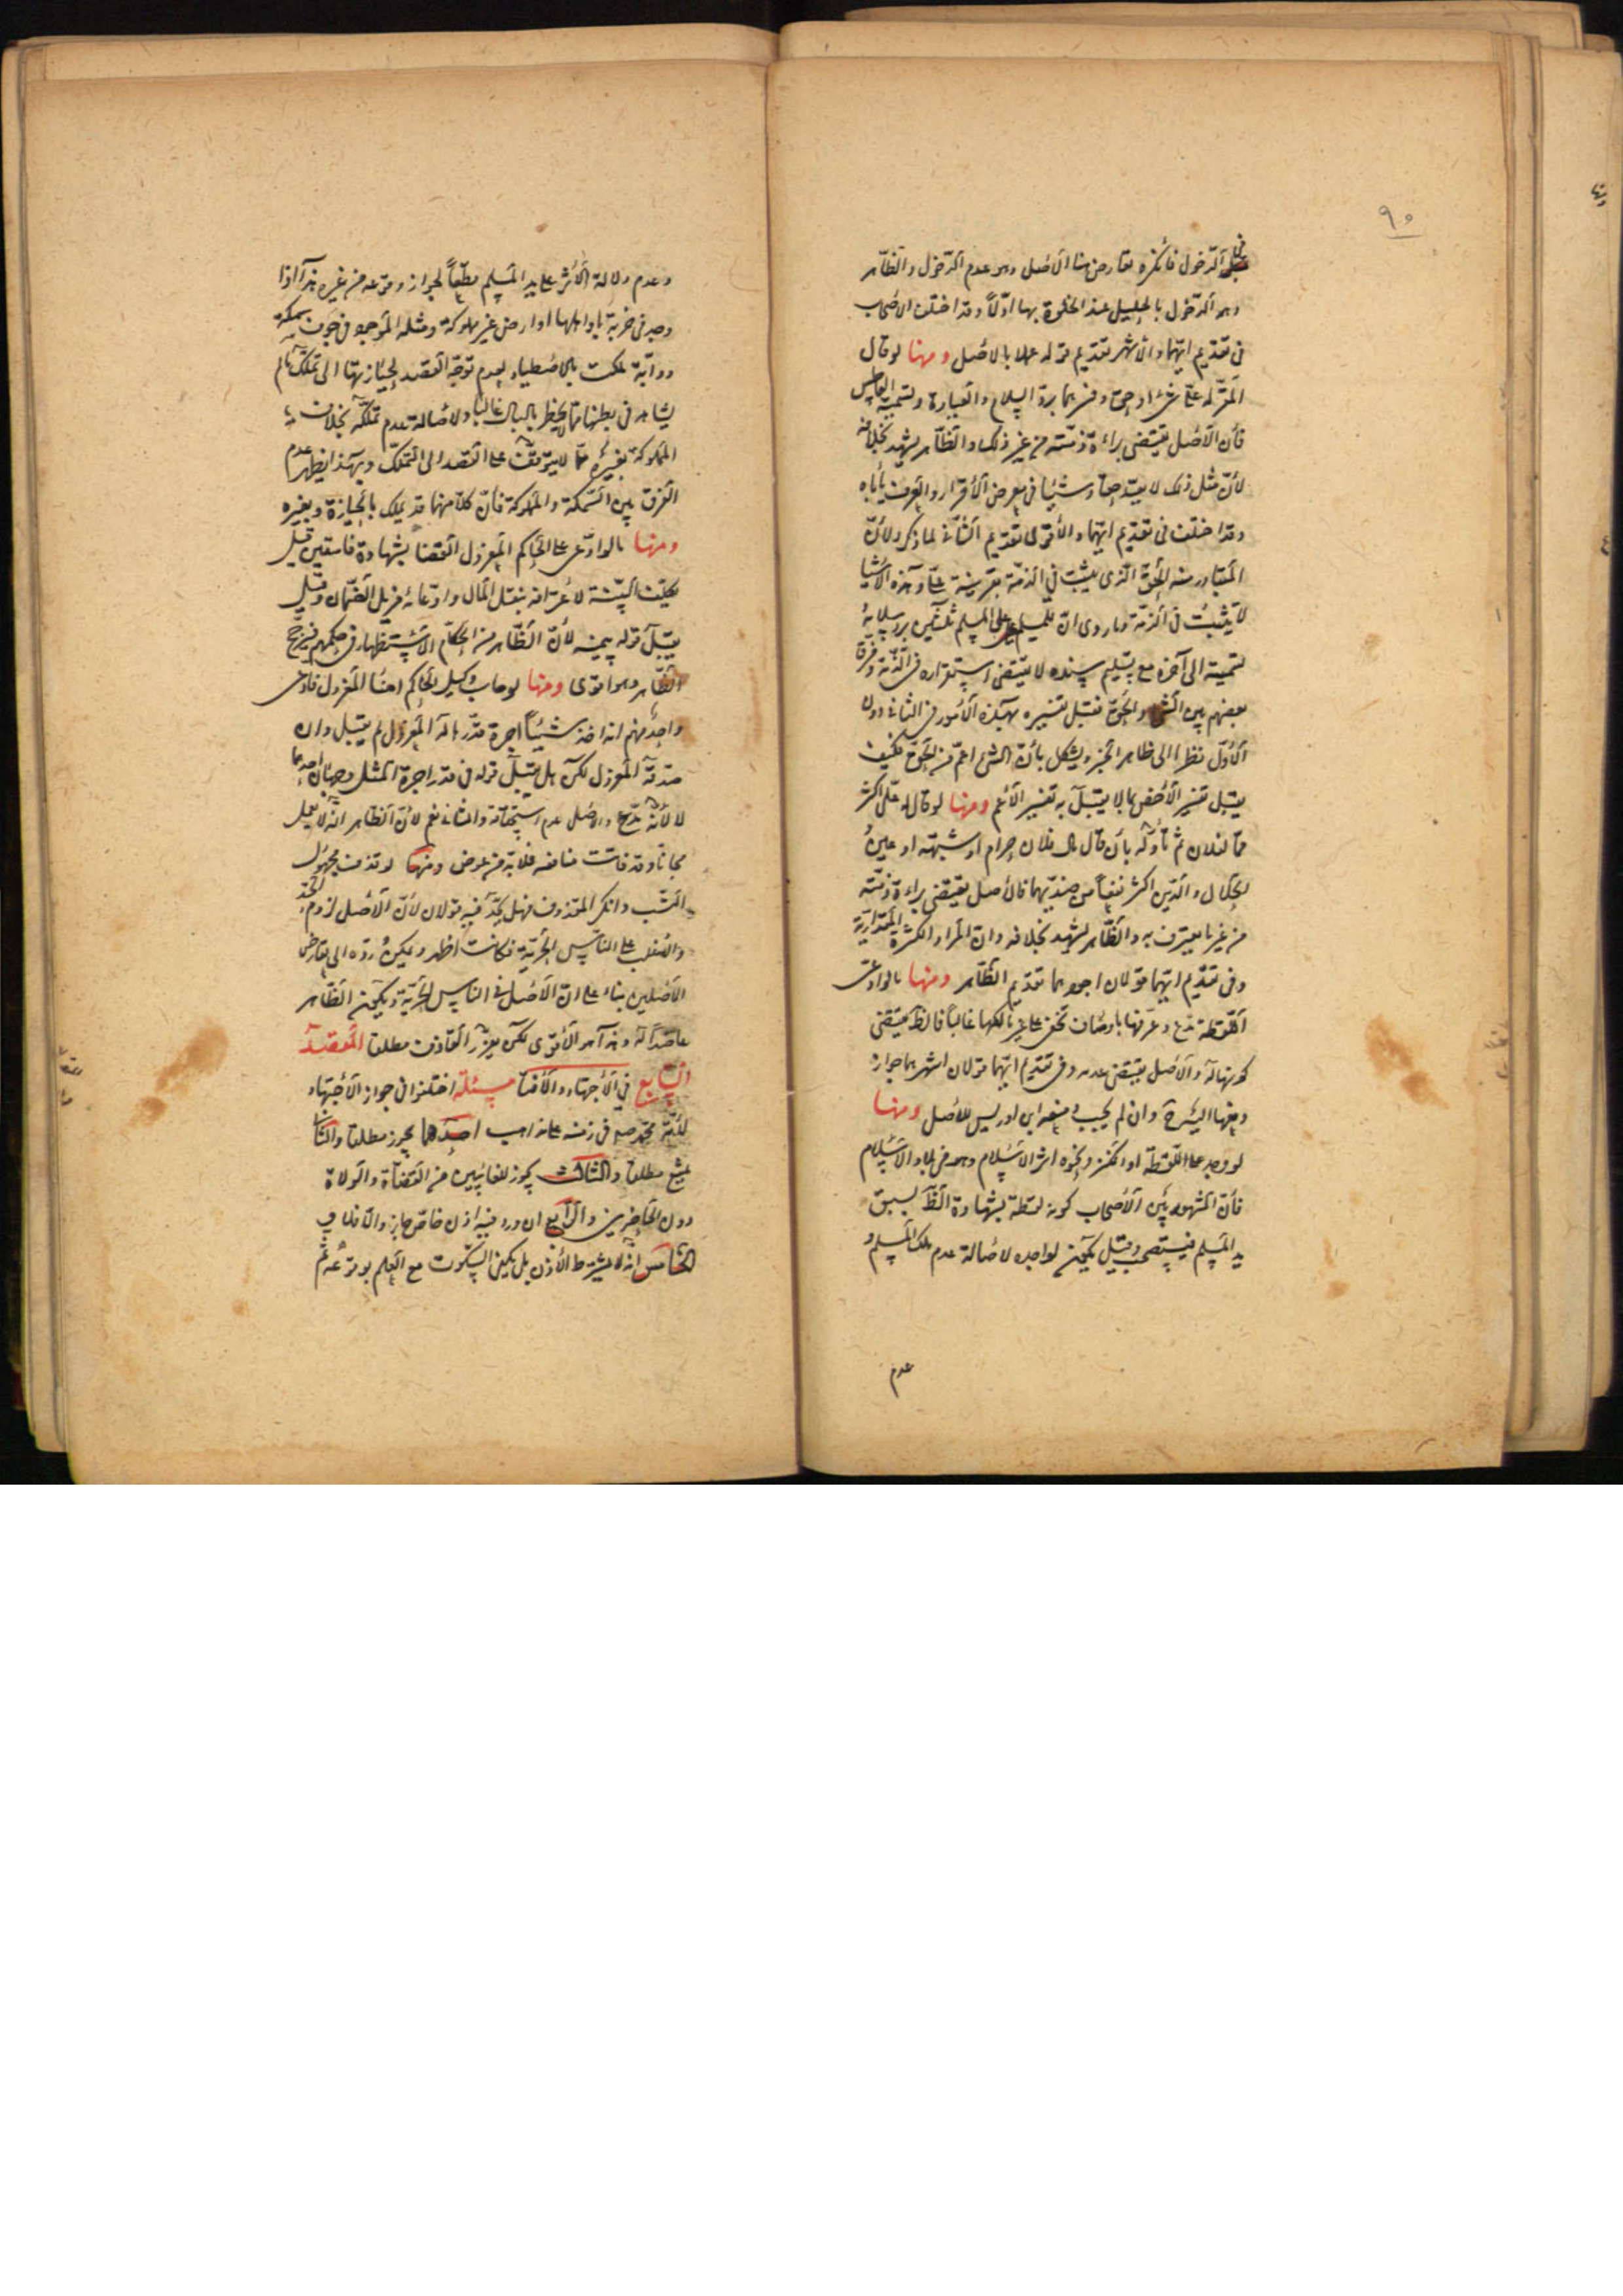 ٩٠
الدّخول فانكره تعارض هنا الاصل وهو عدم الدّخول والظّاهر
وهو الدّخول بالحليل عند الخلوة بها اوّلاً وقد اختلف الاصحاب
فى تقديم ايّهما والاشهر تقديم قوله عملا بالاصل ومنها لو قال
المقرّ له علىّ شىء او حق وفسّرهما بردّ السلام والعيادة وتسميت العاطس
فأن الاصل يقتضى براءة ذمّته من غير ذلك والظّاهر يشهد بخلافه
لانّ مثل ذلك لا يعدّ حقاً وشيئا فى معرض الاقرار والعرف يأباه
وقد اختلف فى تقديم ايّهما والاقوى تقديم الثّانى لما ذكر ولانّ
المتبادر منه الحقّ الّذى يثبت فى الذمّة بقرينة علىّ وهذه الاشيا
لا يثبت فى الذمّة وما روى انّ للمسلم على المسلم ثلثين بردّ سلامه
تسميته الى آخره مع تسليم سنده لا يقتضى استقراره فى الذّمّة وفرق
بعضهم بين الشىء والحقّ فقبل تفسيره بهذه الامور فى الثانى دون
الاوّل نظرا الى ظاهر الخبر ويشكل بانّ الشىء اعمّ من الحق فكيف
يقبل تفسير الاخص بما لا يقبل به تفسير الاعم ومنها لو قال له علىّ اكثر
ممّا لفلان ثم تأوّله بان قال مال فلان حرام او شبهته او عين
الحلال والدّين اكثر نفعاً من ضدّيهما فالاصل يقتضى براءة ذمّته
من غير ما يعترف به والظّاهر يشهد بخلافه وانّ المراد الكثرة المقداريّة
وفى تقديم ايّهما قولان اجودهما تقديم الظّاهر ومنها ما لو ادّعى
اللّقطة مدّع وعرّفها باوصاف تخفى على غير مالكها غالباً فالظ يقتضى
كونها له والاصل يقتضى عدمه وفى تقديم ايّهما قولان اشهرهما جواز
دفعها اليه وان لم يجب ومنعه ابن ادريس للاصل ومنها
لو وجد على اللّقطة او الكنز ونحوه اثر الاسلام وهو فى بلاد الاسلام
فأنّ المشهور بين الاصحاب كونه لقطة بشهادة الظّ لسبق
يد المسلم فيستصحب وقيل يكون لواجده لاصالة عدم ملك المسلم و
عدم
وعدم دلالة الاثر على يد المسلم مطلقاً لجواز وقوعه من غيره هذا اذا
وجد فى خربة باد اهلها او ارض غير مملوكة ومثله الموجود فى جوف سمكة
ودابّة ملكت بالاصطياد لعدم توجّه القصد بحيازتها الى تملّك ما لم
يشاهد فى بطنها ممّا لا يخطر بالبال غالبا ولاصالة عدم تملّكه بخلاف
المملوكة بغيره ممّا لا يتوقّف على القصد الى التّملّك وبهذا يظهر عدم
الفرق بين السّمكة والمملوكة فانّ كلا منهما قد يملك بالحيازة وبغيره
ومنها ما لو ادّعى على الحاكم المعزول القضا بشهادة فاسقين قيل
يكلّف البيّنة لاعترافه بنقل المال وادّعائه مزيل الضّمان وقيل
يقبل قوله بيمينه لانّ الظّاهر من الحكّام الاستظهار فى حكمهم فيرجّح
الظّاهر وهو اقوى ومنها لو حاسب وكيل الحاكم امنا المعزول فادّعى
واحد منهم انه اخذ شيئاً اجرة قدّرها له المعزول لم يقبل وان
صدّقه المعزول لكن هل يقبل قوله فى قدر اجرة المثل وجهان احدهما
لا لانّه مدّع والاصل عدم استحقاقه والثانى نعم لانّ الظّاهر انّه لا يعمل
مجاناً وقد فاتت منافعه فلا بدّ من عوض ومنها لو قذف مجهول
النّسب وانكر المقذوف فهل يحدّ فيه قولان لانّ الاصل لزوم الحدّ
والاغلب على النّاس الحريّة فكانت اظهر ويمكن ردّه الى تعارض
الاصلين بناء على انّ الاصل فى الناس الحريّة ويكون الظّاهر
عاضداً له وهذا هو الاقوى لكن يعزّر القاذف مطلقا المقصد
السّابع فى الاجتهاد والافتا مسئلة اختلفوا فى جواز الاجتهاد
لامّة محمّد ص فى زمنه على مذاهب احدها يجوز مطلقا والثانى
يمنع مطلقا والثالث يجوز للغائبين من القضاة والولاة
دون الحاضرين والرّابع ان ورد فيه اذن خاصّ جاز والّا فلا و
الخامس انّه لا يشترط الاذن بل يكفى السّكوت مع العلم بوقوعه ثم